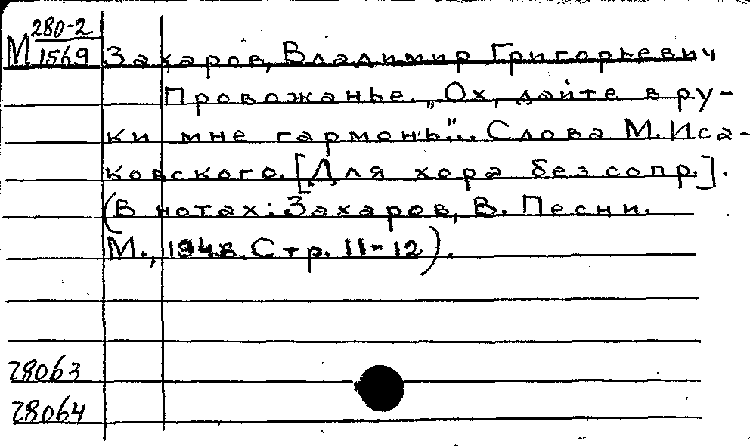 280-2
М 1569 Захаров, Владимир Григорьевич
Провожанье. „Ох, дайте в ру-
ки мне гармонь"... Слова М. Иса-
ковского. [Для хора без сопр.].
(В нотах: Захаров, В. Песни.
М., 1948. Стр. 11-12).
28063
28064